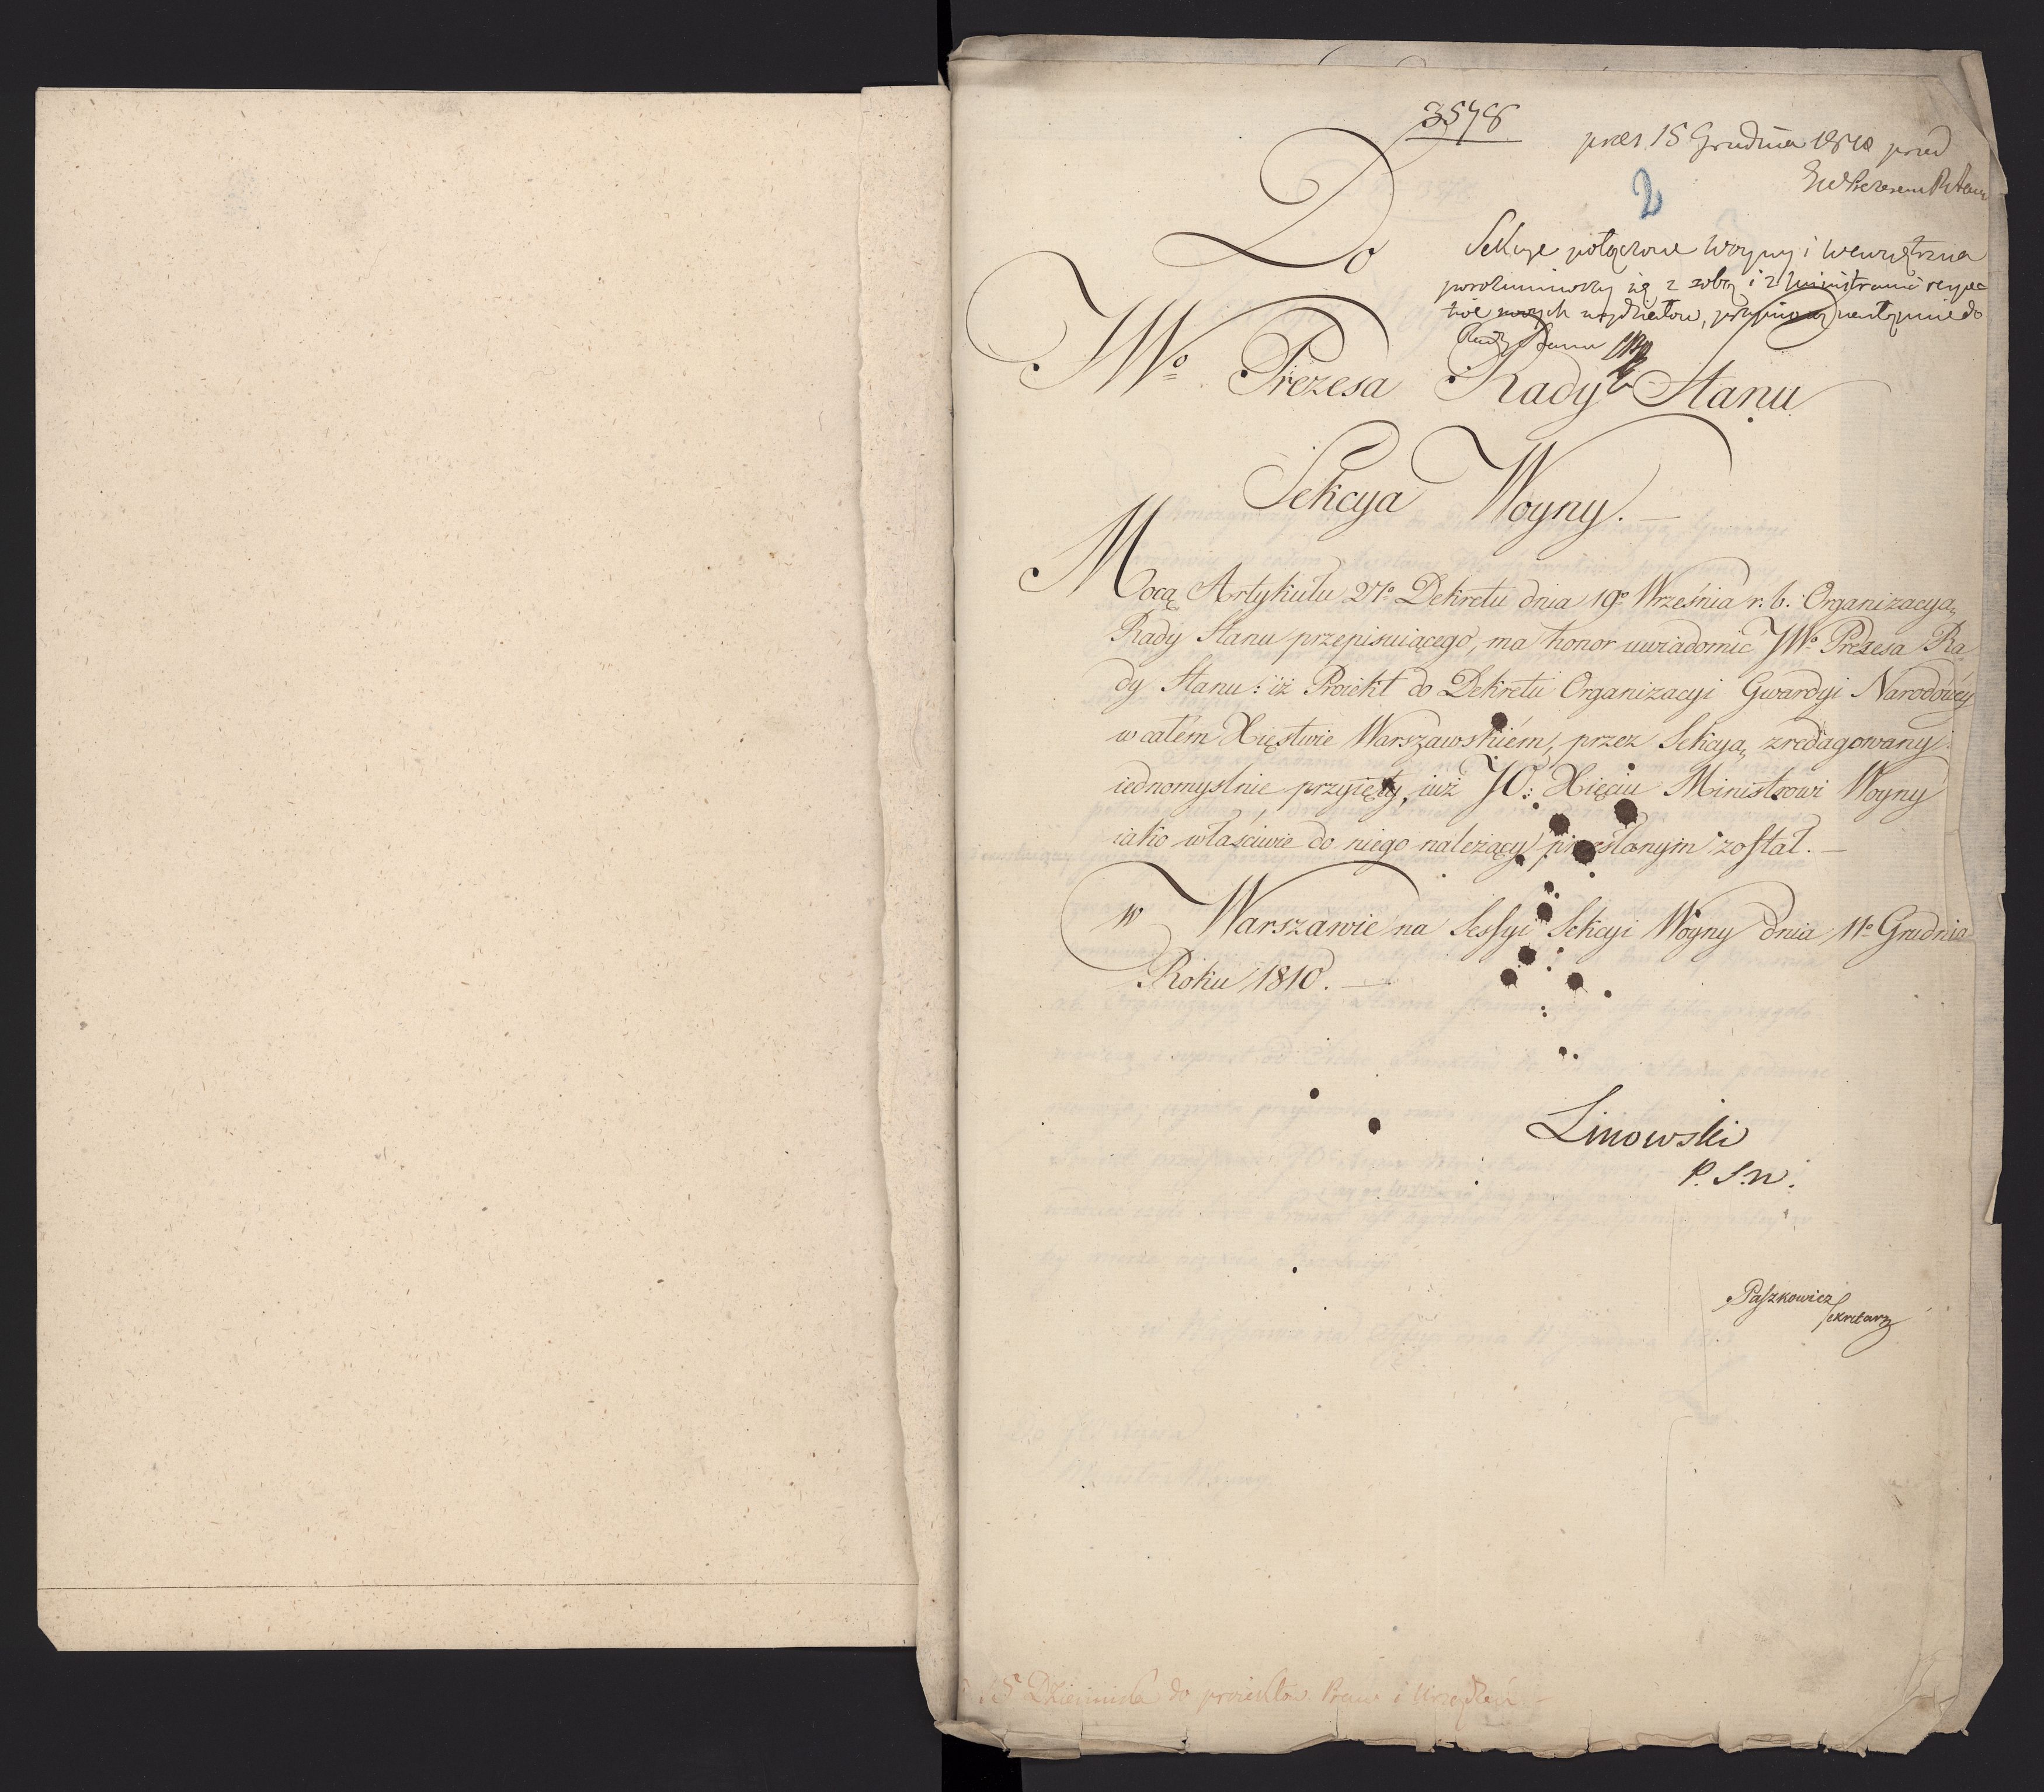 3578
pres 15 Grudnia 1810 przed
2
Sekcye połączone Woyny i Wewnętrzna
porozumiawszy się z sobą i z Ministrami respec
tive swych wydziałów, następnie do
Rady Stanu
Do
JWo Prezesa Rady Stanu
Sekcya Woyny. —
Mocą Artykułu 27o Dekretu dnia 19o Września r. b. Organizacyą
Rady Stanu przepisuiącego, ma honor uwiadomić JWo Prezesa Ra
dy Stanu: iż Proiekt do Dekretu Organizacyi Gwardyi Narodowéy
w całém Xięstwie Warszawskiém, przez Sekcyą zredagowany
iednomyslnie przyięty, iuż JO: Xięciu Ministrowi Woyny
iako właściwie do niego należący przesłanym został. —
w Warszawie na Sessyi Sekcyi Woyny dnia 11o Grudnia
Roku 1810. —
Linowski
P. S. W.
Paszkowicz
Sekretarz
Dziennika do proiektów Praw i Urządzeń —